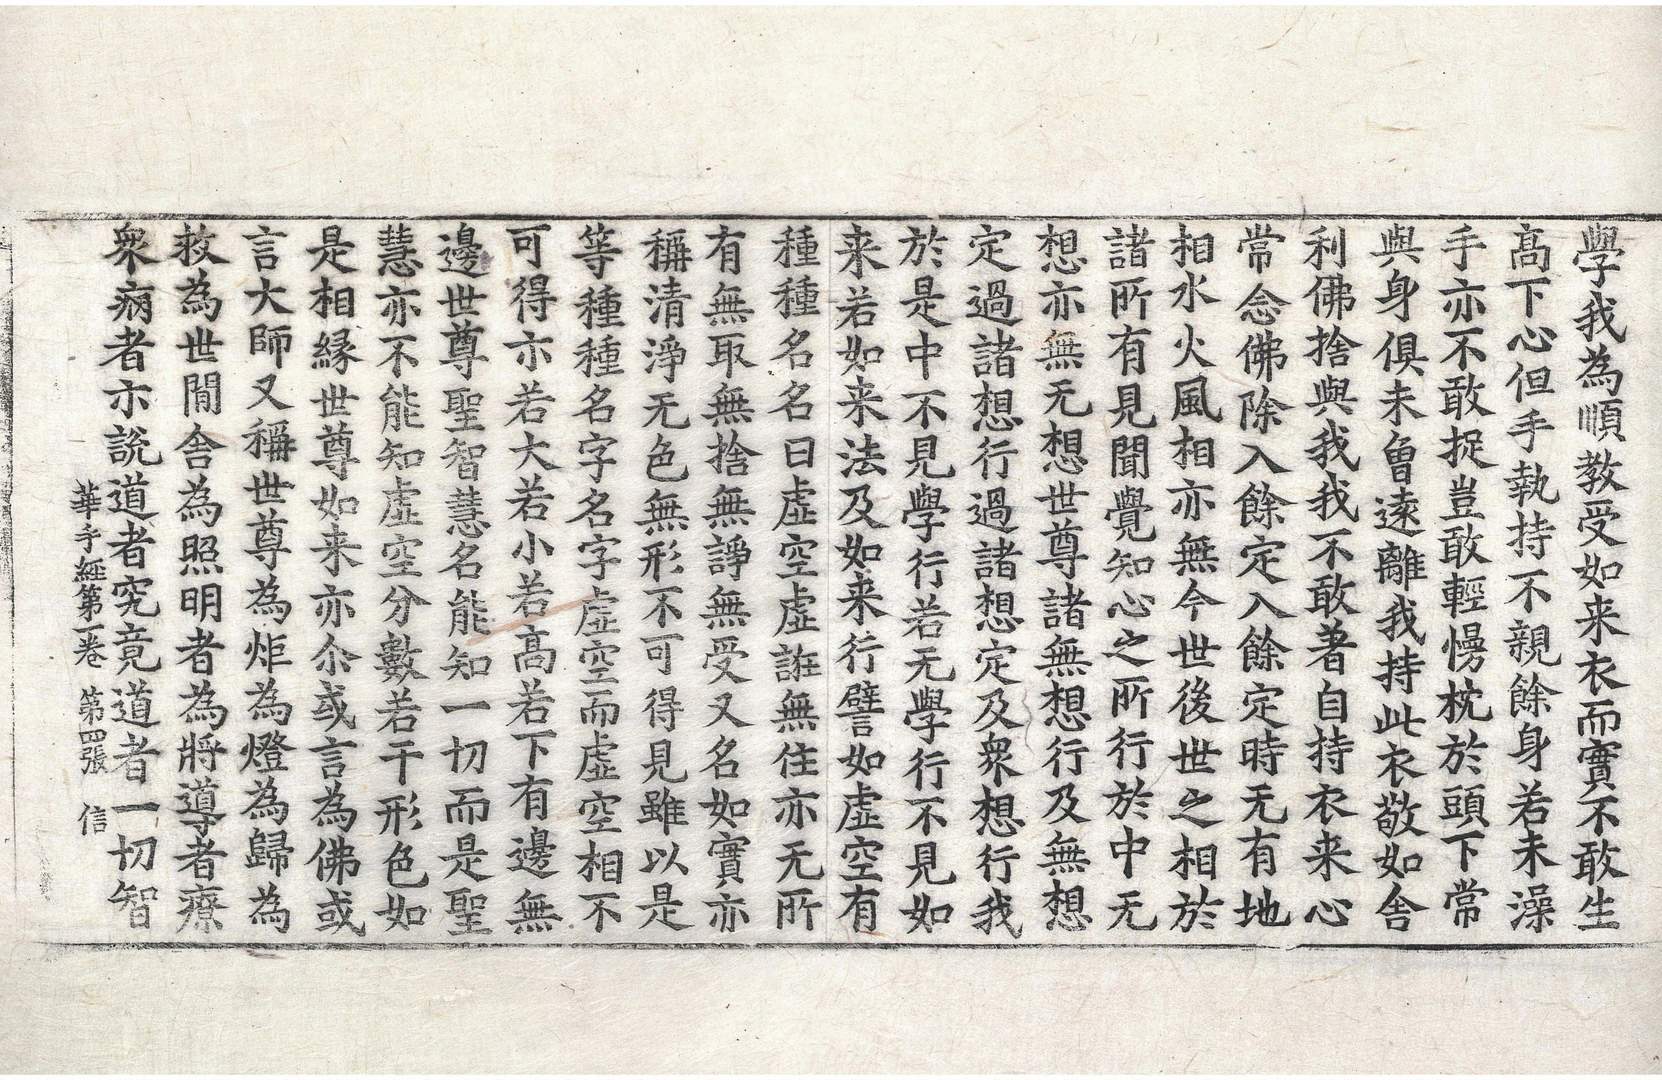 學我為順教受如来衣而實不敢生
髙下心但手執持不親餘身若未澡
手亦不敢捉豈敢輕慢枕於頭下常
與身俱未曾遠離我持此衣敬如舎
利佛捨與我我不敢著自持衣来心
常念佛除入餘定入餘定時无有地
相水火風相亦無今世後世之相於
諸所有見聞覺知心之所行於中无
想亦無无想世尊諸無想行及無想
定過諸想行過諸想定及衆想行我
於是中不見學行若无學行不見如
来若如来法及如来行譬如虛空有
種種名名曰虛空虛誑無住亦无所
有無取無捨無諍無受又名如實亦
稱清淨无色無形不可得見雖以是
等種種名字名字虛空而虛空相不
可得亦若大若小若髙若下有邊無
邊世尊聖智慧名能知一切而是聖
慧亦不能知虛空分數若干形色如
是相縁世尊如来亦尒或言為佛或
言大師又稱世尊為炬為燈為歸為
救為世閒舎為照明者為將導者療
衆病者亦說道者究竟道者一切智
華手經第一卷 第四張 信